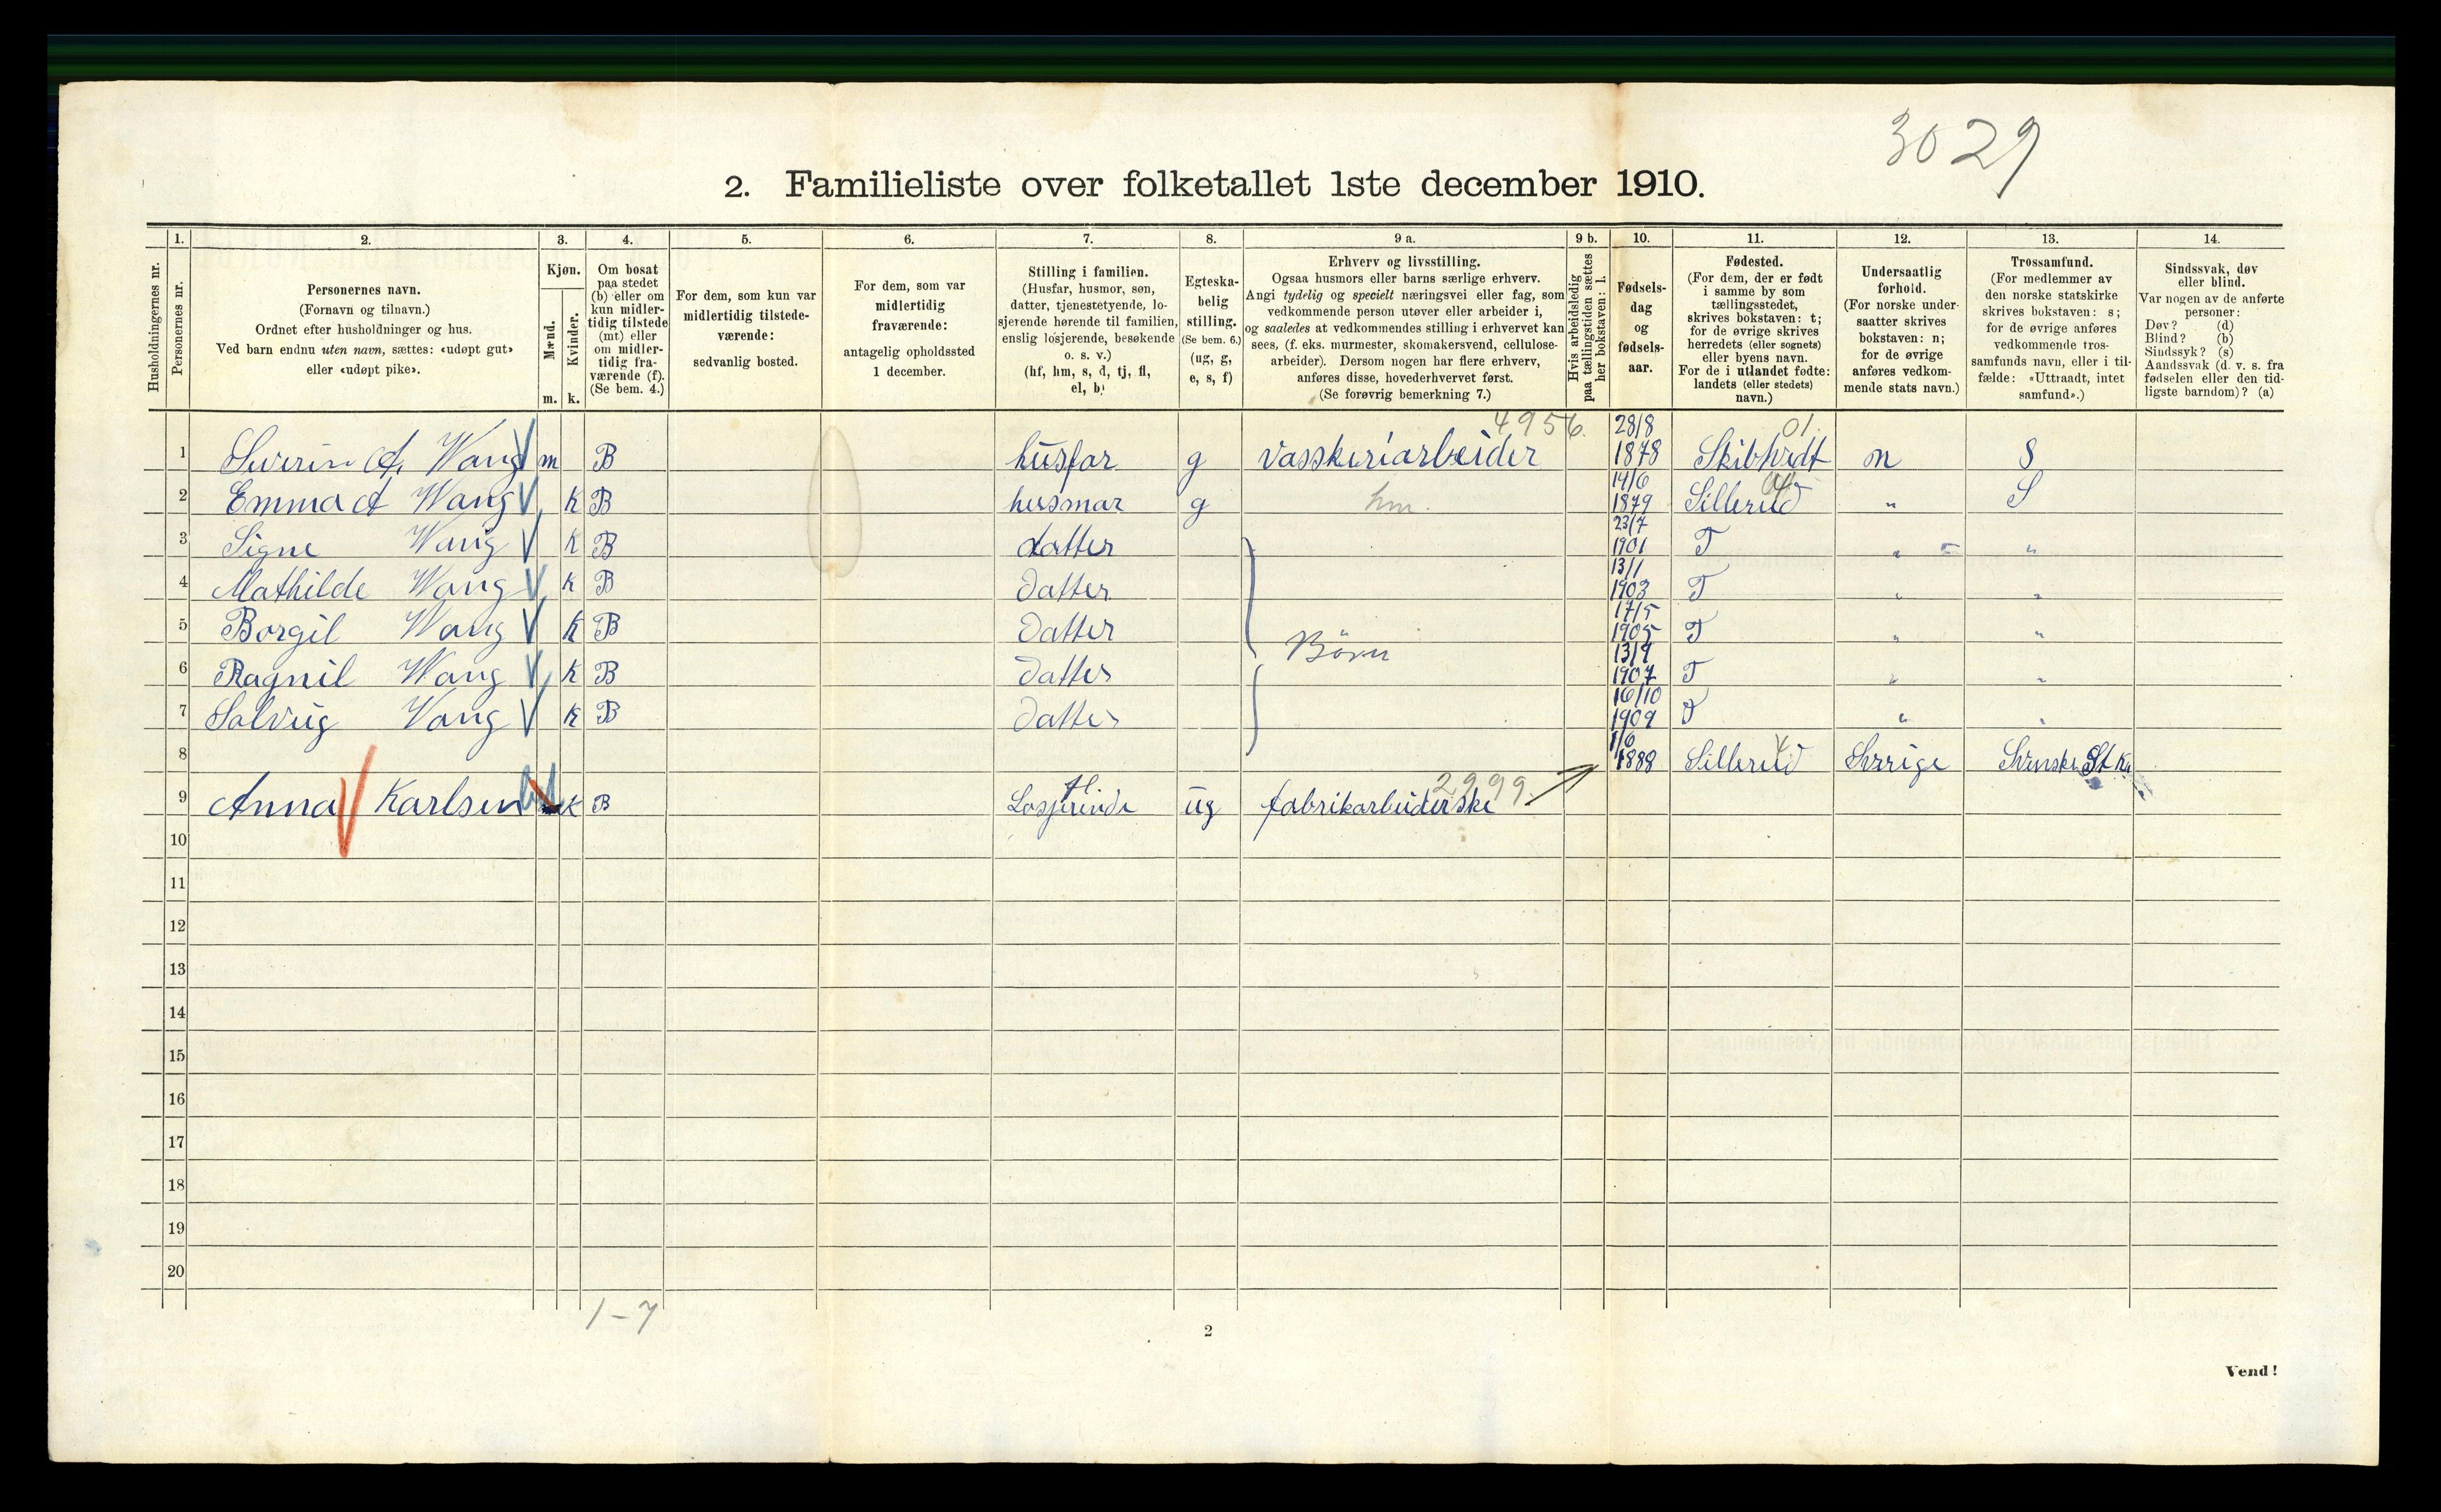 3029
2. Familieliste over folketallet 1ste december 1910.
Husholdningernes nr.
1. Personernes nr.
2. Personernes navn. (Fornavn og tilnavn.) Ordnet efter husholdninger og hus. Ved barn endnu uten navn, sættes: «udøpt gut» eller «udøpt pike».
3. Kjøn. Mænd. m. Kvinder. k.
4. Om bosat paa stedet (b) eller om kun midlertidig tilstede (mt) eller om midlertidig fraværende (f). (Se bem. 4.)
5. For dem, som kun var midlertidig tilstedeværende: sedvanlig bosted.
6. For dem, som var midlertidig fraværende: antagelig opholdssted 1 december.
7. Stilling i familien. (Husfar, husmor, søn, datter, tjenestetyende, losjerende hørende til familien, enslig losjerende, besøkende o. s. v.) (hf, hm, s, d, tj, fl, el, b)
8. Egteskabelig stilling. (Se bem. 6.) (ug, g, e, s, f)
9 a. Erhverv og livsstilling. Ogsaa husmors eller barns særlige erhverv. Angi tydelig og specielt næringsvei eller fag, som vedkommende person utøver eller arbeider i, og saaledes at vedkommendes stilling i erhvervet kan sees, (f. eks. murmester, skomakersvend, cellulose-arbeider). Dersom nogen har flere erhverv, anføres disse, hovederhvervet først. (Se forøvrig bemerkning 7.)
9 b. Hvis arbeidsledig paa tællingstiden sættes her bokstaven: l.
10. Fødselsdag og fødselsaar.
11. Fødested. (For dem, der er født i samme by som tællingsstedet, skrives bokstaven: t; for de øvrige skrives herredets (eller sognets) eller byens navn. For de i utlandet fødte: landets (eller stedets) navn.)
12. Undersaatlig forhold. (For norske undersaatter skrives bokstaven: n; for de øvrige anføres vedkommende stats navn.)
13. Trossamfund. (For medlemmer av den norske statskirke skrives bokstaven: s; for de øvrige anføres vedkommende trossamfunds navn, eller i tilfælde: «Uttraadt, intet samfund».)
14. Sindssvak, døv eller blind. Var nogen av de anførte personer: Døv? (d) Blind? (b) Sindssyk? (s) Aandssvak (d. v. s. fra fødselen eller den tidligste barndom)? (a)
4956. 01.
1 Wang V m B husfar g vasskeriarbeider 28/8 1878 n S
2 Emma A Wang V k B husmar g hm. 14/6 1879 Sillerud " S
3 Signe Wang V k B datter 23/7 1901 T " "
4 Mathilde Wang V k B Datter 13/1 1903 T " "
5 Borgil Wang V K B Datter Børn 17/5 1905 T " "
6 Ragnil Wang V K B Datter 1907 T " "
7 Solvüg Wang V K B Datter 16/10 1909 T " "
8 1/6 1888 Sillerud Sverige Svenske St K
9 Anna V Karlsen K B Losjerinde fl ug fabrikarbeiderske 2999
10
11
12
13
14
15
16
17
18
19
20
1-7
2
Vend!